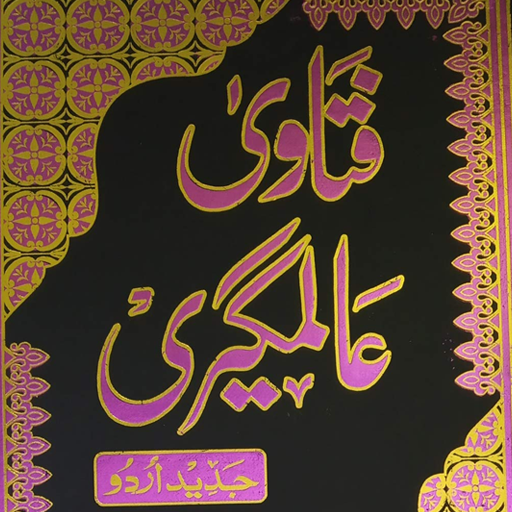 فتاویٰ
عالمگیری
جدید اردو